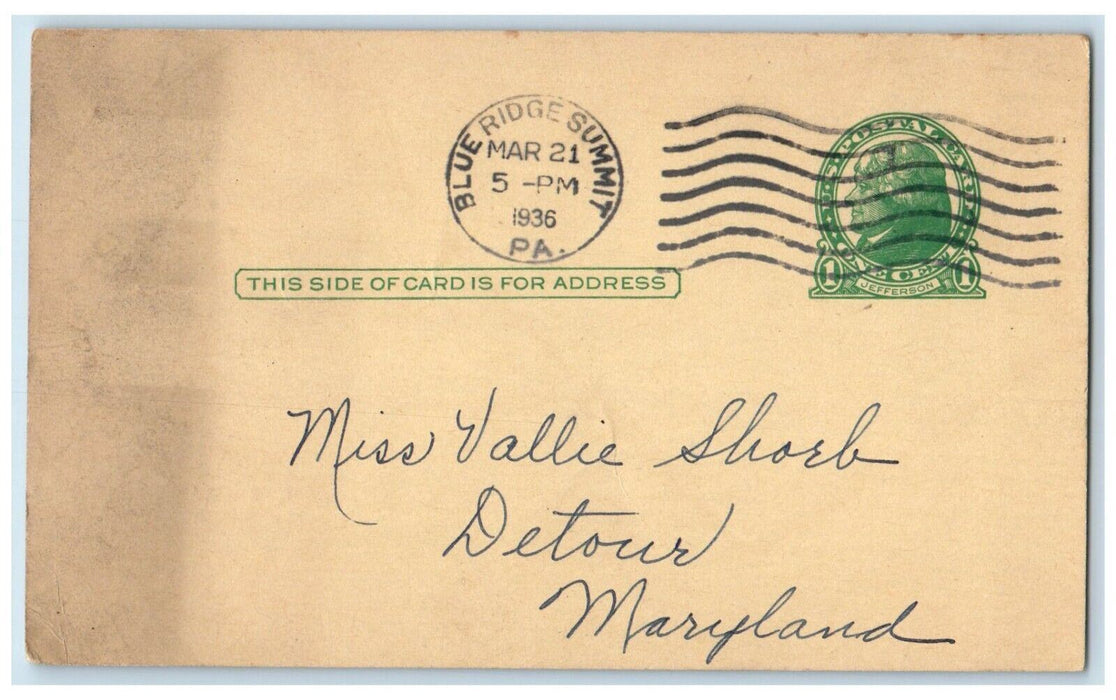 BLUE RIDGE SUMMIT
MAR 21
5 -PM
1936
PA.
U.S. POSTAL CARD
1 ONE CENT 1
JEFFERSON
THIS SIDE OF CARD IS FOR ADDRESS
Miss Vallie Shorb
Detour
Maryland